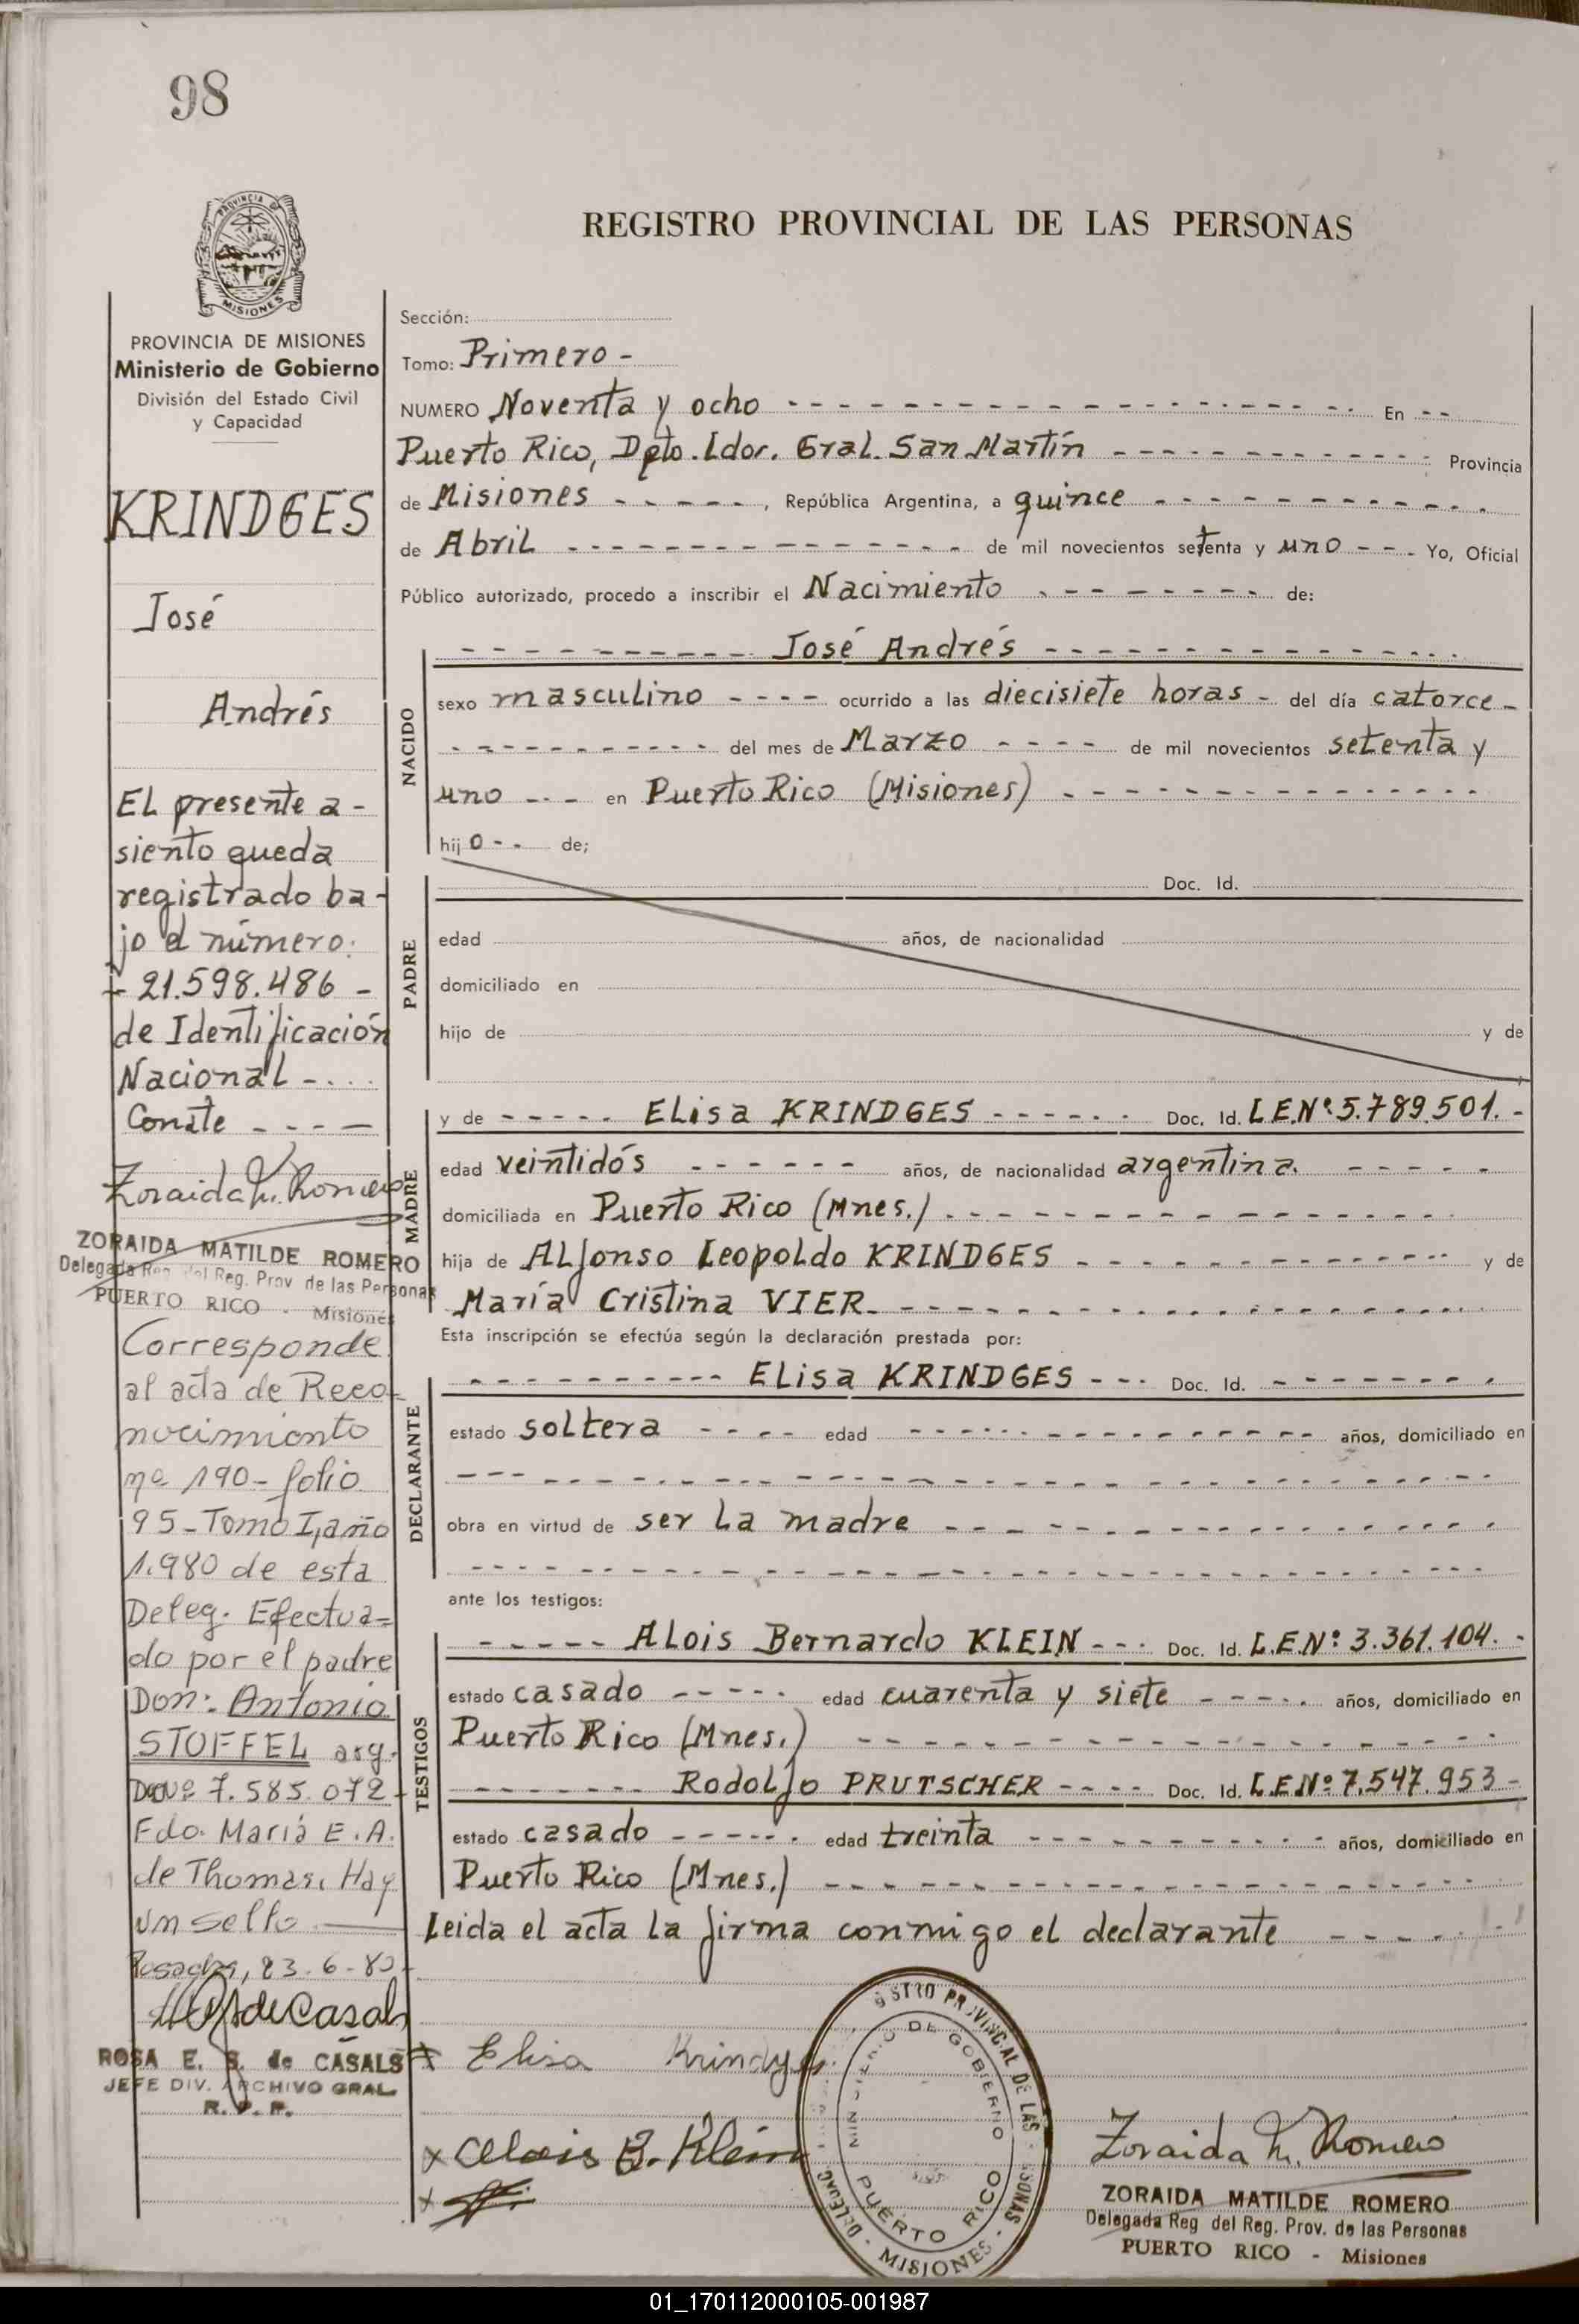 98
PROVINCIA DE
MISIONES
REGISTRO PROVINCIAL DE LAS PERSONAS
PROVINCIA DE MISIONES
Ministerio de Gobierno
División del Estado Civil
y Capacidad
KRINDGES
José
Andrés
El presente a-
siento queda
registrado ba-
jo el número:
- 21.598.486 -
de Identificación
Nacional - . . .
Conste - - - -
Zoraida M. Romero
ZORAIDA MATILDE ROMERO
Delegada Reg. del Reg. Prov. de las Personas
PUERTO RICO - Misiones
Corresponde
al acta de Reco-
nocimiento
nº 190 - folio
95 - Tomo I, año
1.980 de esta
Deleg. Efectua=
do por el padre
Don: Antonio
STOFFEL arg.
7.585.072
Fdo. María E. A.
de Thomas. Hay
un sello
Posadas, 23-6-80
ROSA E. S. de CASALS
JEFE DIV. ARCHIVO GRAL.
R. P. P.
Sección:
Tomo: Primero -
NUMERO Noventa y ocho - - - En - -
Puerto Rico, Dpto. Ldor. Gral. San Martín - - - Provincia
de Misiones - - - , República Argentina, a quince - - -
de Abril - - - de mil novecientos setenta y uno - - - Yo, Oficial
Público autorizado, procedo a inscribir el Nacimiento - - - de:
NACIDO
- - - José Andrés - - -
sexo masculino - - - - ocurrido a las diecisiete horas - del día catorce -
- - - del mes de Marzo - - - - de mil novecientos setenta y
uno - - - en Puerto Rico (Misiones) - - -
hijo - - de;
PADRE
Doc. Id.
edad años, de nacionalidad
domiciliado en
hijo de y de
MADRE
y de - - - Elisa KRINDGES - - - Doc. Id. L.E.Nº: 5.789.501. -
edad veintidós - - - años, de nacionalidad argentina. - - -
domiciliada en Puerto Rico (Mnes.) - - -
hija de Alfonso Leopoldo KRINDGES - - - y de
María Cristina VIER - - -
Esta inscripción se efectúa según la declaración prestada por:
DECLARANTE
- - - Elisa KRINDGES - - - Doc. Id. - - -
estado soltera - - - - edad - - - años, domiciliado en
- - -
obra en virtud de ser la madre - - -
- - -
ante los testigos:
TESTIGOS
- - - Alois Bernardo KLEIN - - - Doc. Id. L.E.Nº: 3.361.104. -
estado casado - - - edad cuarenta y siete - - - años, domiciliado en
Puerto Rico (Mnes.) - - -
- - - Rodolfo PRUTSCHER - - - - Doc. Id. L.E.Nº: 7.547.953 -
estado casado - - - edad treinta - - - años, domiciliado en
Puerto Rico (Mnes.) - - -
Leida el acta la firma conmigo el declarante - - -
Elisa Krindges
x Alois B. Klein
x
REGISTRO PROVINCIAL DE LAS PERSONAS - MISIONES - DELEGAC.
MINISTERIO DE GOBIERNO
PUERTO RICO
Zoraida M. Romero
ZORAIDA MATILDE ROMERO
Delegada Reg del Reg. Prov. de las Personas
PUERTO RICO - Misiones
01_170112000105-001987